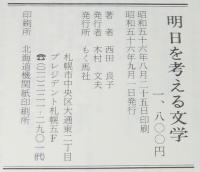 明日を考える文学
一、八〇〇円
昭和五十六年八月二十五日印刷
昭和五十六年九月一日発行
著者 西田良子
発行者 木村文夫
発行所 もく馬社
札幌市中央区大通東二丁目
プレジデント札幌五F
☎(〇一一)二二一-二九〇一(代)
印刷所 北海道機関紙印刷所